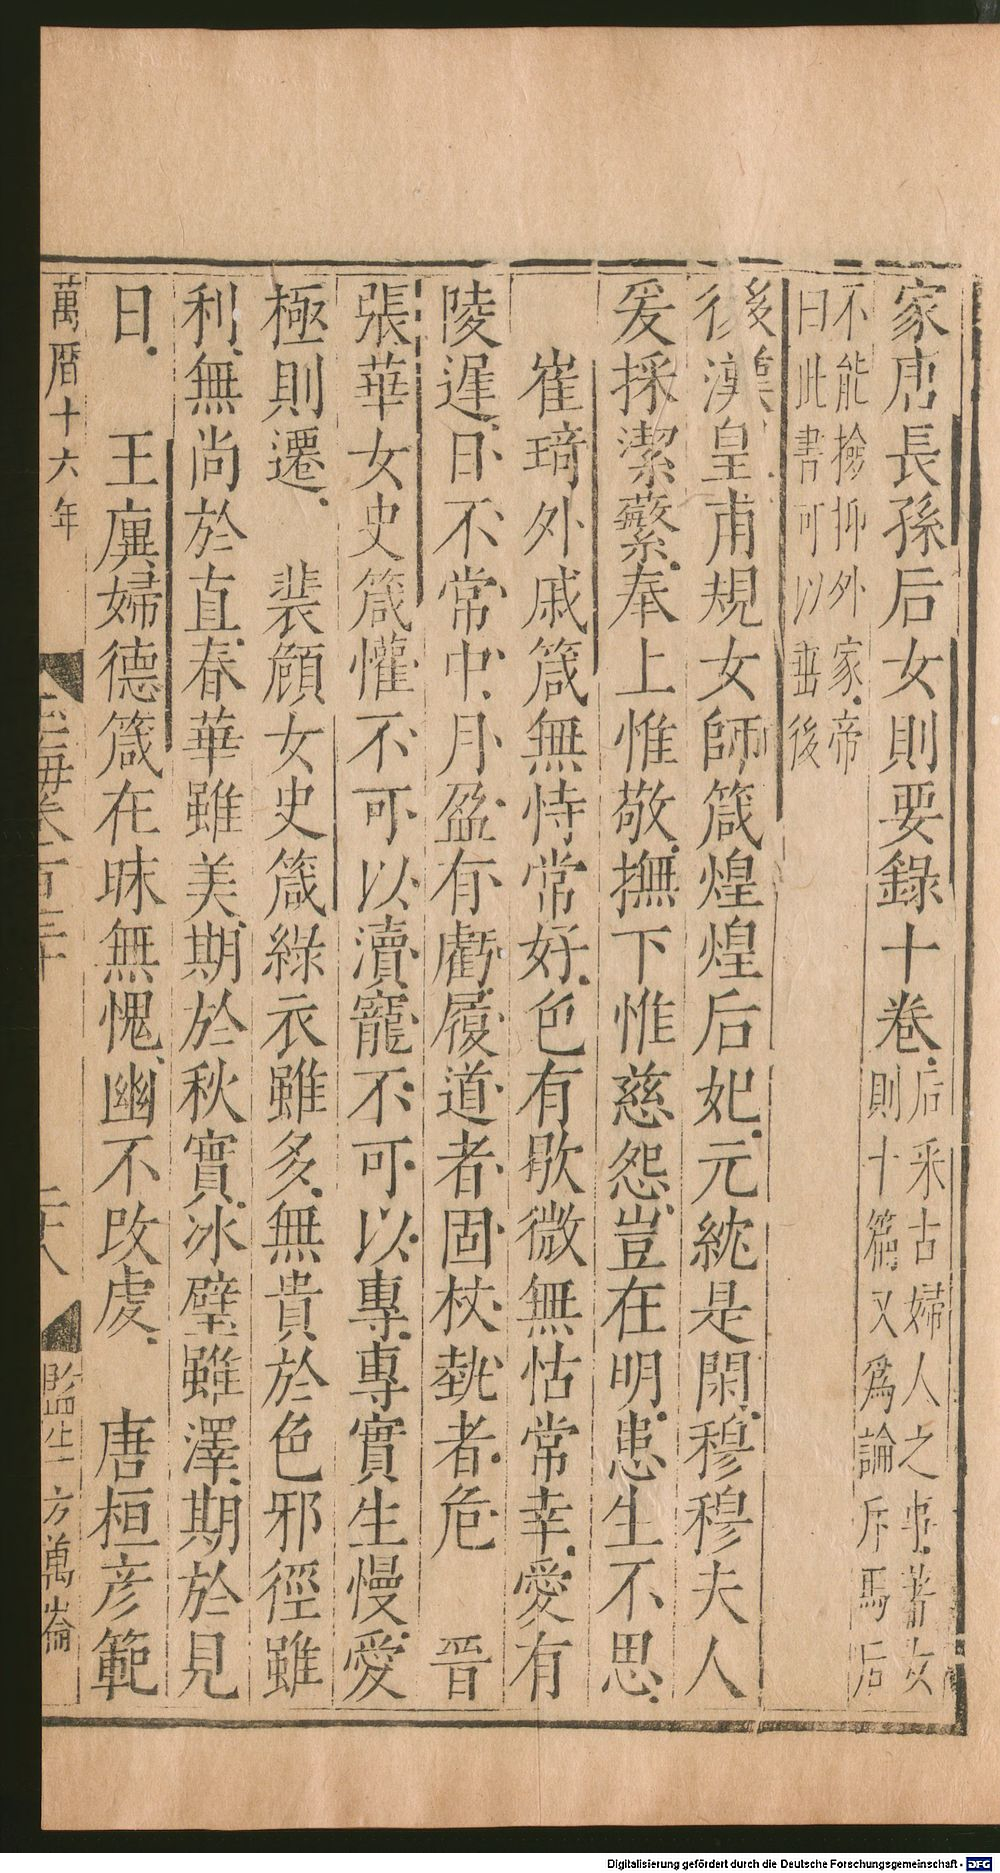 家唐長孫后女則要錄十卷后采古婦人之事著女
則十篇又爲論斥馬后
不能撿抑外家帝
曰此書可以垂後
後漢皇甫規女師箴煌煌后妃元紞是閑穆穆夫人
爰採潔蘩奉上惟敬撫下惟慈怨豈在明患生不思
崔琦外戚箴無恃常好色有歇微無怙常幸愛有
陵遲日不常中月盈有虧履道者固杖埶者危　晉
張華女史箴懽不可以瀆寵不可以專專實生慢愛
極則遷　裴頠女史箴綠衣雖多無貴於色邪徑雖
利無尚於直春華雖美期於秋實冰璧雖澤期於見
日　王廙婦德箴在昧無愧幽不改虔　唐桓彦範
萬曆十六年
玉海卷百三十
二十八
監生方萬崙
Digitalisierung gefördert durch die Deutsche Forschungsgemeinschaft - DFG